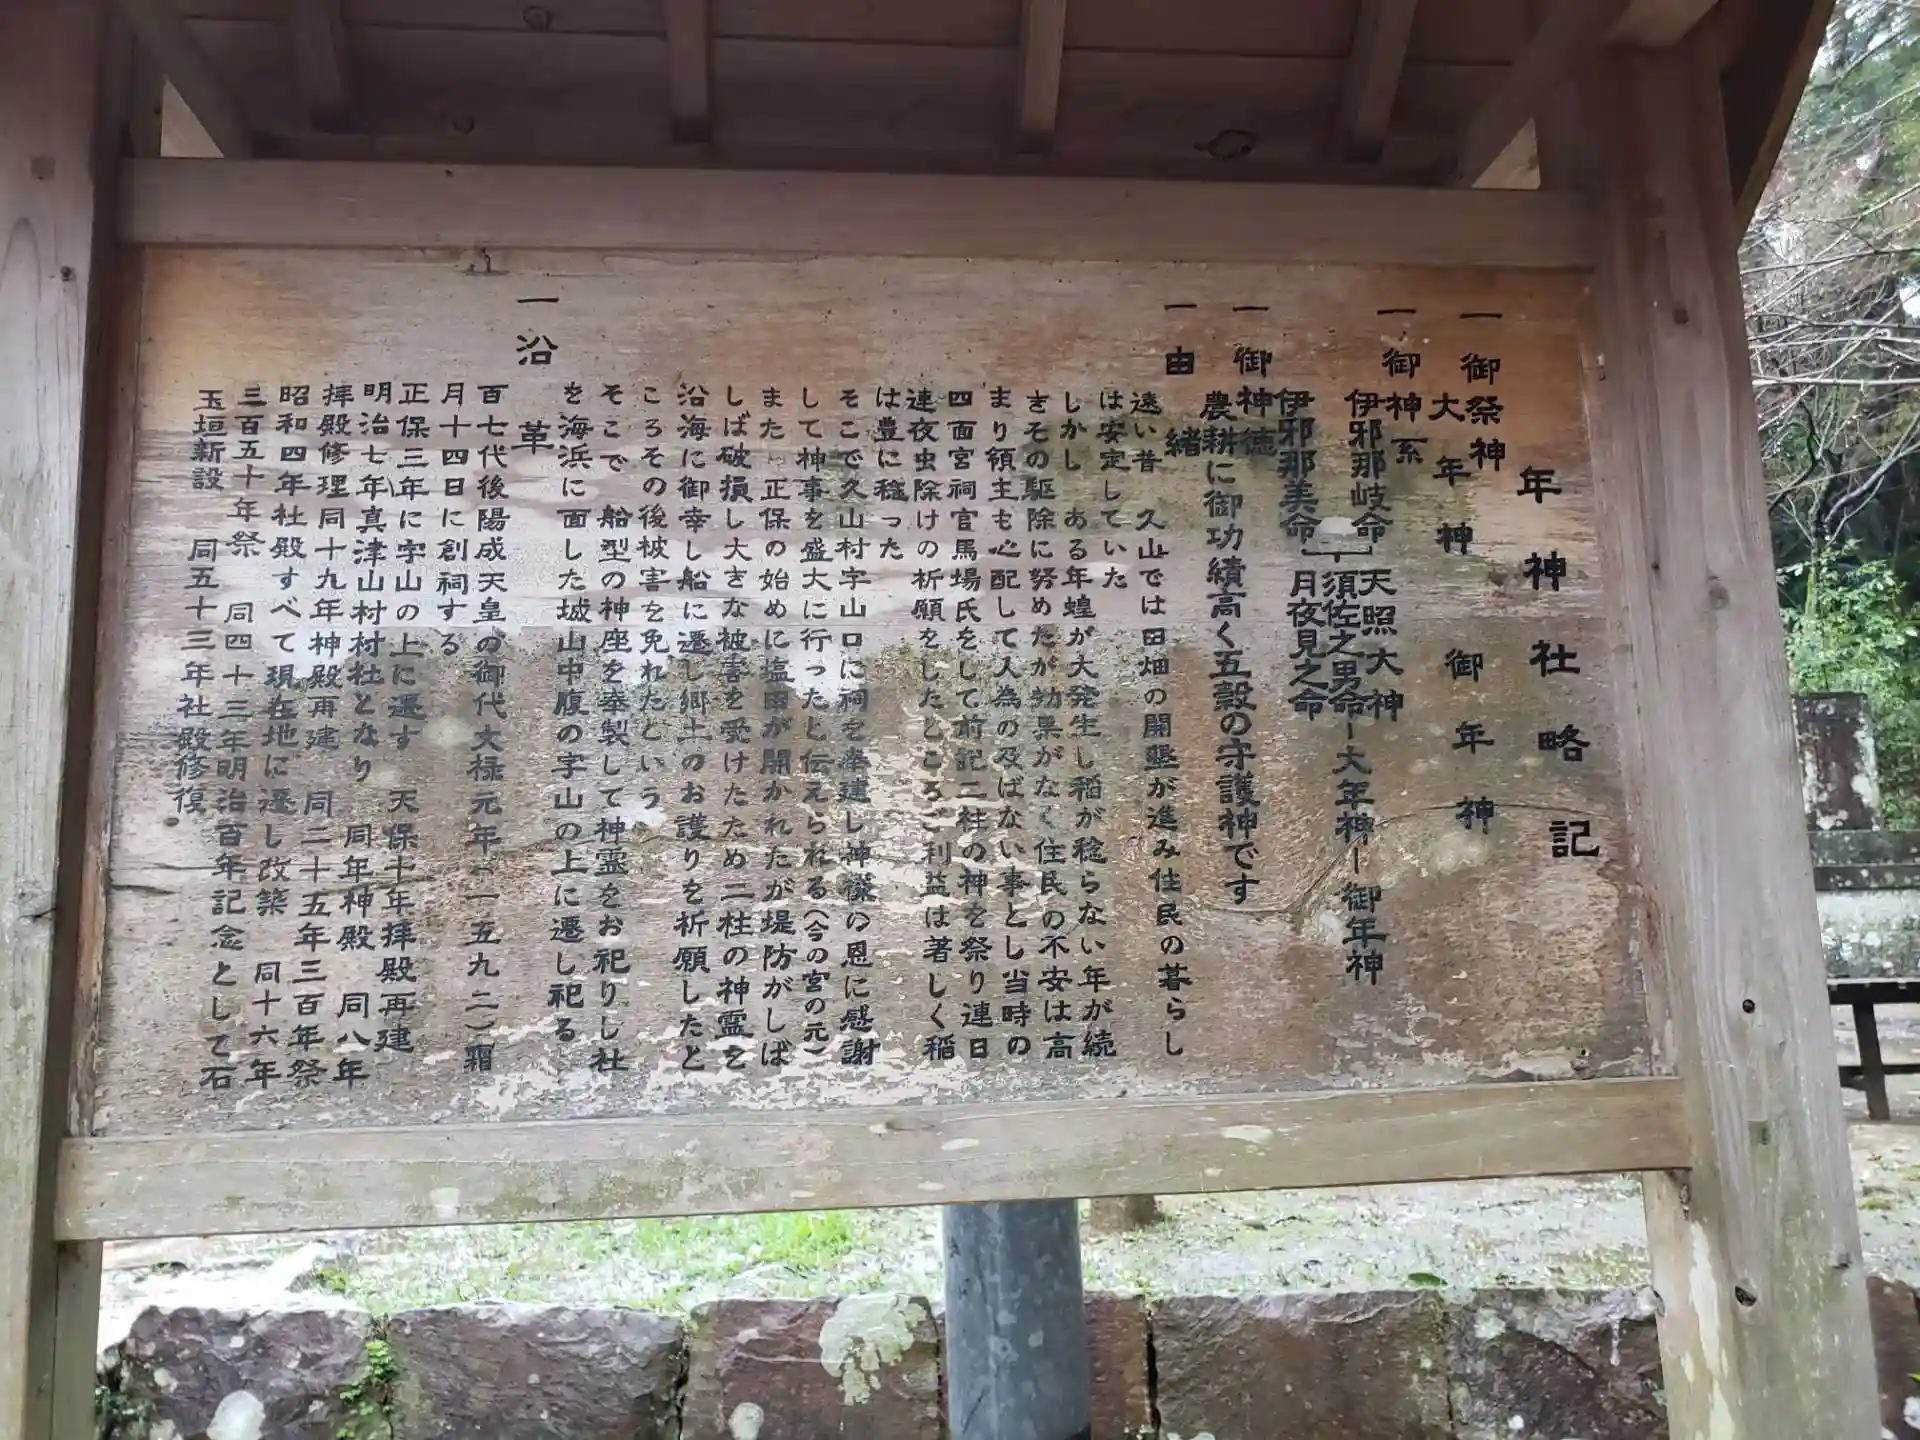 年神社略記
一御祭神
大年神　御年神
一御神系
伊邪那岐命 天照大神
須佐之男命ー大年神ー御年神
伊邪那美命 月夜見之命
一御神徳
農耕に御功績高く五穀の守護神です
一由緒
遠い昔　久山では田畑の開墾が進み住民の暮らし
は安定していた
しかし　ある年蝗が大発生し稲が稔らない年が続
きその駆除に努めたが効果がなく住民の不安は高
まり領主も心配して人為の及ばない事とし当時の
四面宮祠官馬場氏をして前記二柱の神を祭り連日
連夜虫除けの祈願をしたところご利益は著しく稲
は豊に稔った
そこで久山村字山口に祠を奉建し神様の恩に感謝
して神事を盛大に行ったと伝えられる（今の宮の元）
また　正保の始めに塩田が開かれたが堤防がしば
しば破損し大きな被害を受けたため二柱の神霊を
沿海に御幸し船に遷し郷土のお護りを祈願したと
ころその後被害を免れたという
そこで　船型の神座を奉製して神霊をお祀りし社
を海浜に面した城山中腹の字山の上に遷し祀る
一沿革
百七代後陽成天皇の御代大禄元年（一五九二）霜
月十四日に創祠する
正保三年に字山の上に遷す　天保十年拝殿再建
明治七年真津山村村社となり　同年神殿　同八年
拝殿修理同十九年神殿再建　同二十五年三百年祭
昭和四年社殿すべて現在地に遷し改築　同十六年
三百五十年祭　同四十三年明治百年記念として石
玉垣新設　同五十三年社殿修復。